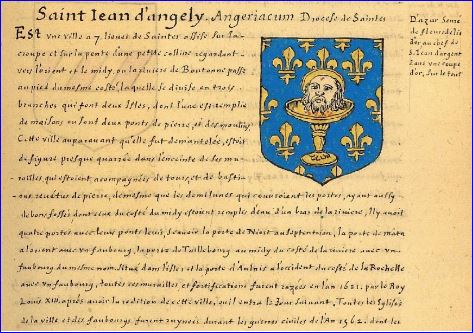 Saint Iean d'angely. Angeriacum Diocese de Saintes
Est vne ville a 7 lieues de Saintes assise sur la
croupe et sur la pente d'une petite colline regardant
vers l'orient et le midy, ou la riviere de Boutonne passe
au pied du mesme costé, laquelle se divise en trois
branches qui font deux Isles, dont l'une est remplie
de maisons ou sont deux ponts de pierre, et des moulins,
Cette ville auparavant qu'elle fut demantelée, estoit
de figure presque quarrée dans l'enceinte de ses mu-
railles qui estoient acompagnées de tours, et de basti-
ons revétus de pierre, de mesme que les demi lunes qui couvroient les portes, ayant aussy
de bons fossés dont ceux du costé du midy estoient remplis d'eau d'un bras de la riviere, Il y avoit
quatre portes avec leurs ponts levis, scavoir la porte de Niort au septentrion, la porte de mata
a l'orient avec vn faubourg, la porte de Taillebourg au midy du costé de la riviere avec vn
faubourg du mesme nom, situé dans l'isle, et la porte d'Aulnis a l'occident du costé de la Rochelle
avec vn faubourg, toutes ses murailles, et fortifications furent razées en l'an 1621. par le Roy
Louis XIII. après avoir la redition de cette ville, qu'il entra le Iour suivant, Toutes les Eglises
de la ville et des faubourgs furent ruynées durant les guerres civiles de l'An 1562, dont les
D'azur Semé
de fleurs de lis
d'or au chef de
S. Iean d'argent
dans vne coupe
d'or, sur le tout